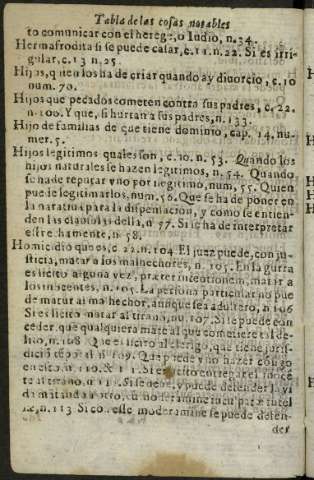 Tabla de las cosas notables
to comunicar con el herege, o Iudio, n. 34.
Hermafrodita si se puede casar, c. 11. n. 22. Si es irri-
gular, c. 13 n. 25.
Hijos, quien los ha de criar quando ay diuorcio, c. 10
num. 70.
Hijos que pecados cometen contra sus padres, c. 22.
n. 100. Y que, si hurtan a sus padres, n. 133.
Hijo de familias de que tiene dominio, cap. 14. nu-
mer. 5.
Hijos legitimos quales son, c. 10. n. 53. Quando los
hijos naturales se hazen legitimos, n. 54. Quando
se ha de reputar vno por legitimo, num, 55. Quien
puede legitimarlos, num. 56. Que se ha de poner en
la naratiua para la dispensacion, y como se entien-
den las clausulas della, n 57. Si se ha de interpretar
estrechamente, n. 58.
Homicidio que es, c. 22. n. 104. El juez puede, con ju-
sticia, matar a los malhechores, n. 105. En la gurra
es licito alguna vez, præter intentionem, matar a
los inocentes, n. 105. La persona particular no pue
de matar al malhechor, aunque sea adultero, n 106
Si es licito matar al tirano, nu. 107. Si le puede con
ceder, que qualquiera mate al que cometiere tal de-
lito, n. 108. Que es licito al clerigo, que tiene juris-
dició 109. Que puede vno hazer
en 110. & 111. Si es licito entregar el inoce
te al tirano, n Si se puede defender la vi
da moderamine inculpatæ tutel
læ, n. 113 Si con esse moderamine se puede defen-
der